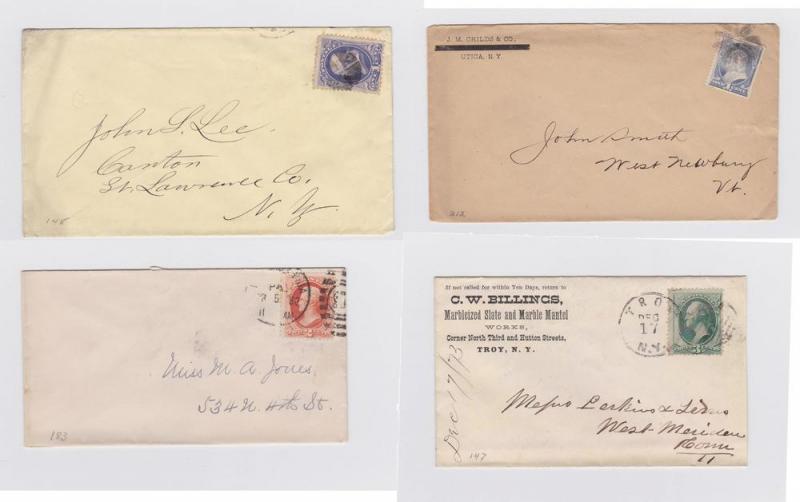 John S. Lee.
Canton
St. Lawrence Co.,
N. Y.
145
J. M. CHILDS & CO.
UTICA, N.Y.
John Smith
West Newbury
Vt.
212
Miss M. A. Jones,
534 N. 4th St.
183
If not called for within Ten Days, return to
C. W. BILLINGS,
Marbleized Slate and Marble Mantel
WORKS,
Corner North Third and Hutton Streets,
TROY, N. Y.
TRO
DEC
17
N.Y.
Dec 17/73
Messrs Perkins &
West Meriden
Conn
147